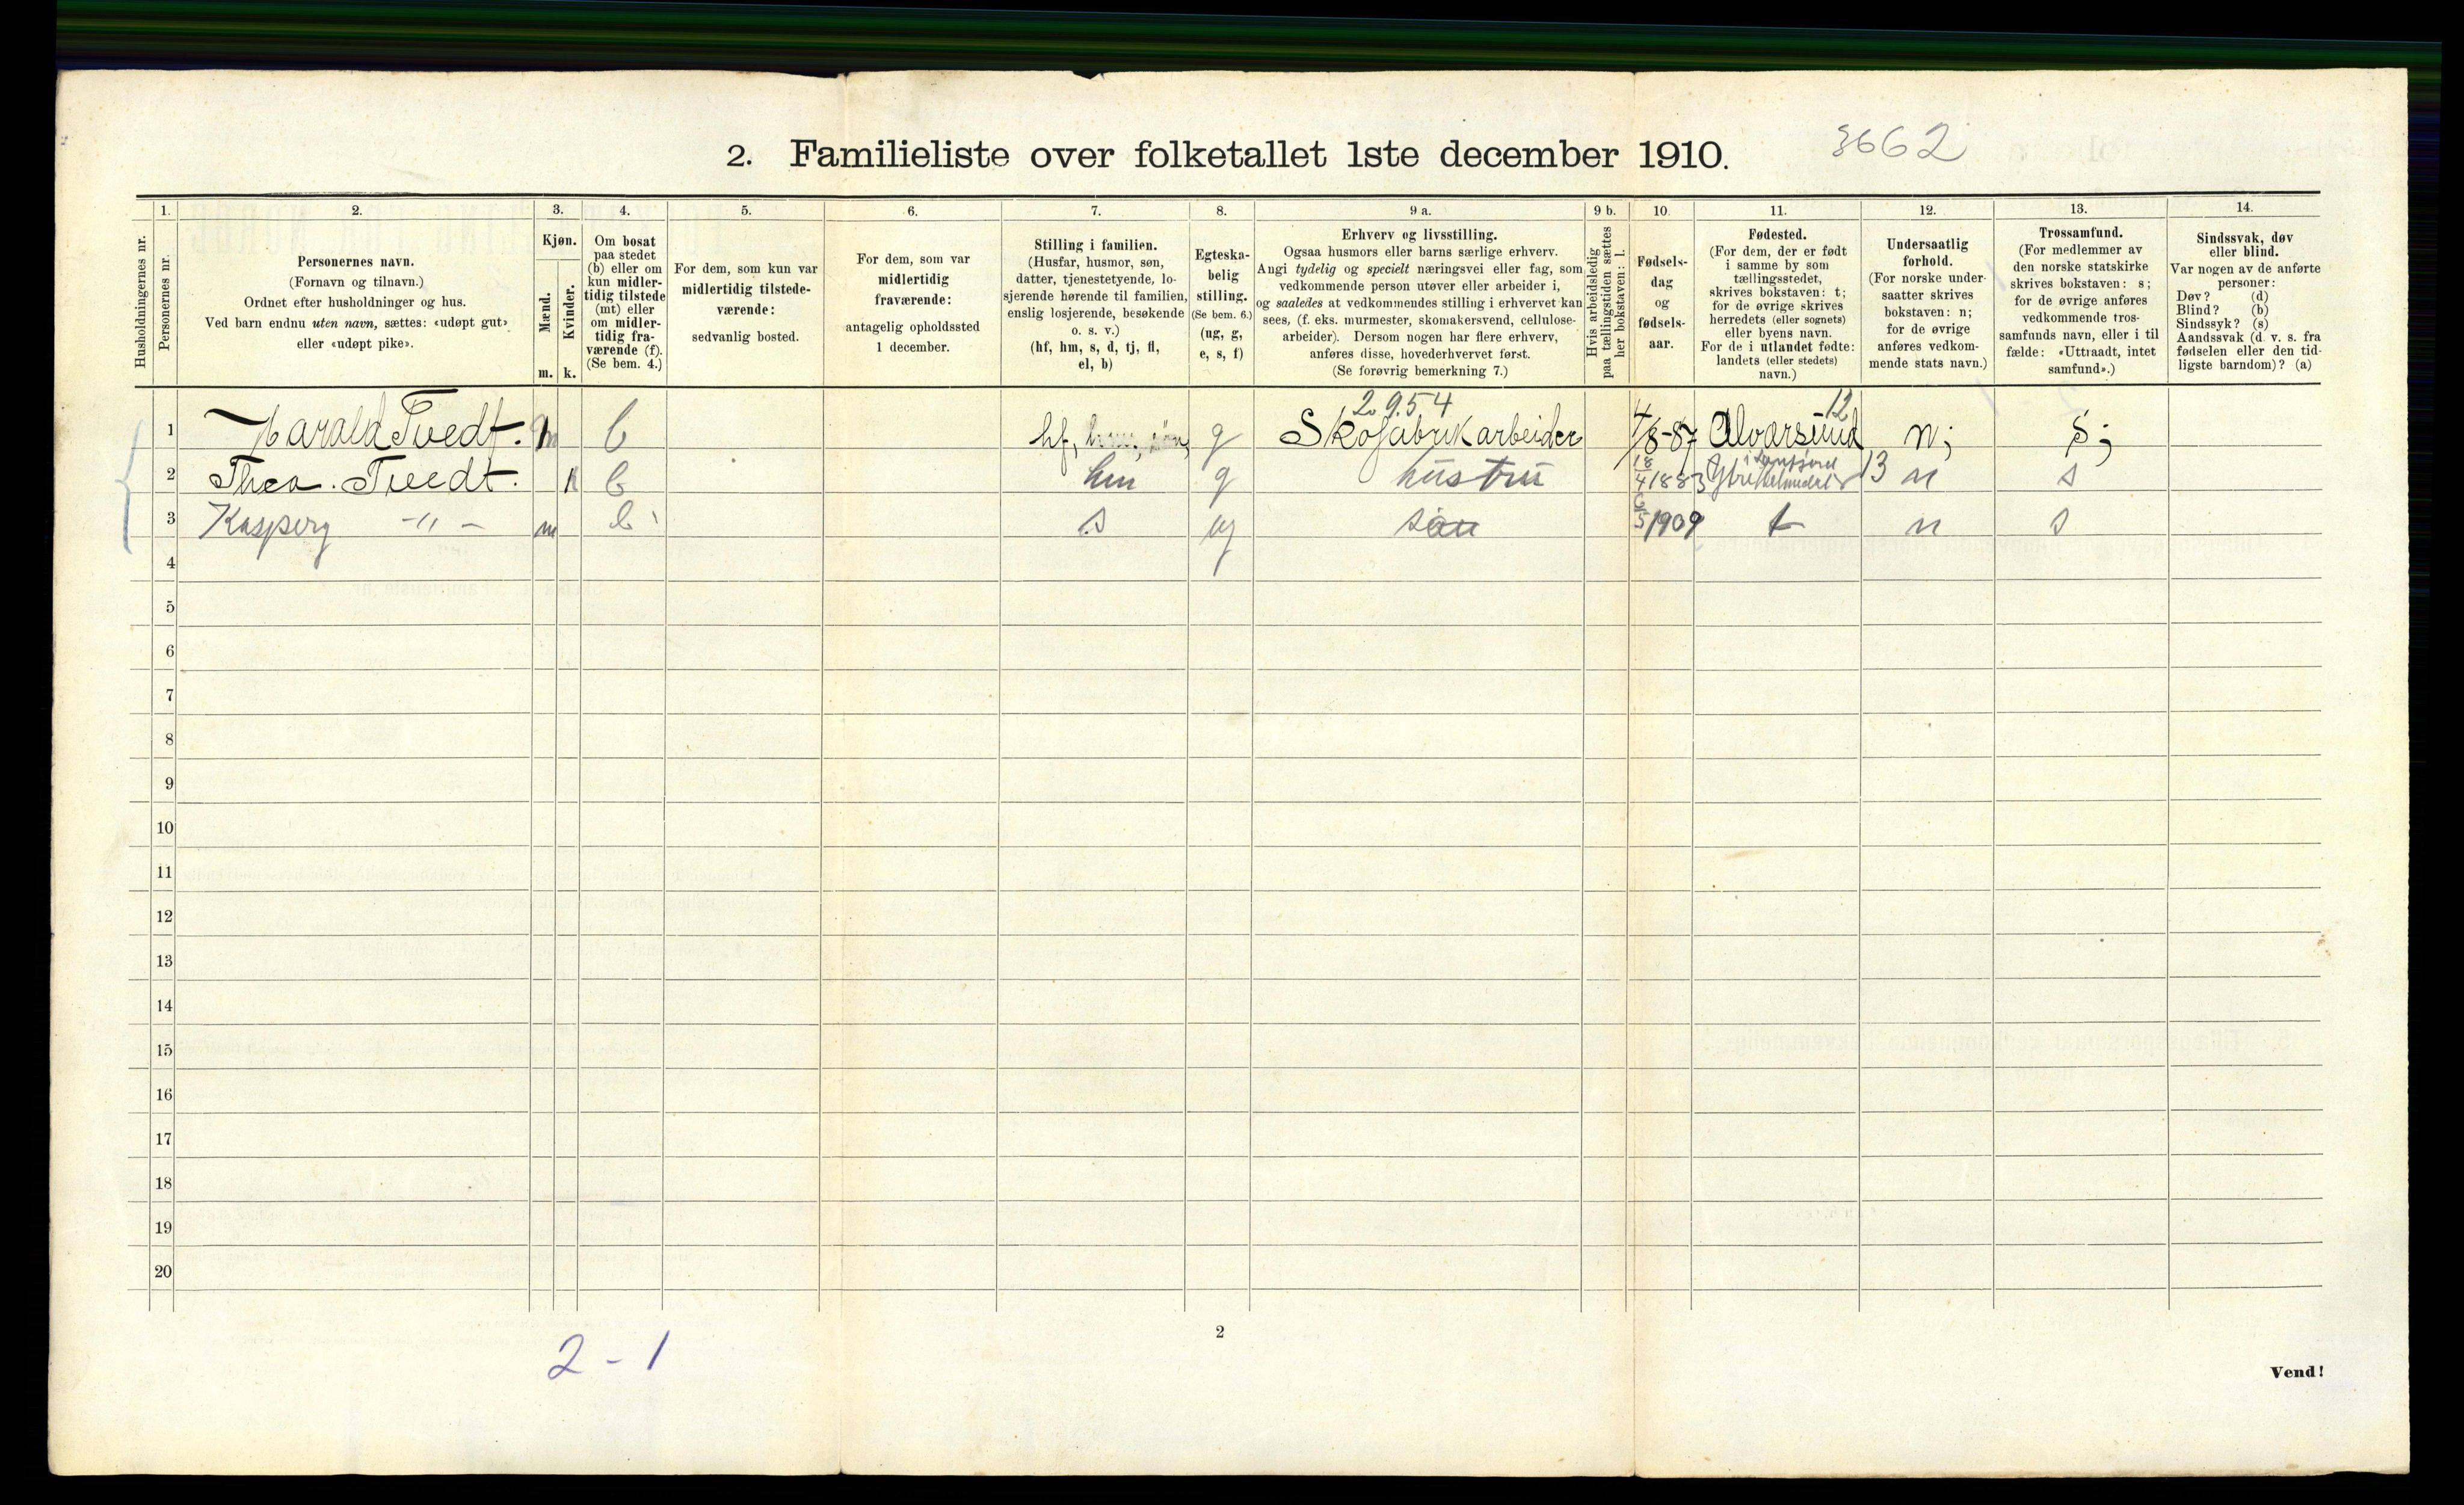 2. Familieliste over folketallet 1ste december 1910.
3662
Husholdningernes nr.
1.
Personernes nr.
2.
Personernes navn.
(Fornavn og tilnavn.)
Ordnet efter husholdninger og hus.
Ved barn endnu uten navn, sættes: «udøpt gut»
eller «udøpt pike».
3.
Kjøn.
Mænd.
Kvinder.
m. k.
4.
Om bosat
paa stedet
(b) eller om
kun midler-
tidig tilstede
(mt) eller
om midler-
tidig fra-
værende (f).
(Se bem. 4.)
5.
For dem, som kun var
midlertidig tilstede-
værende:
sedvanlig bosted.
6.
For dem, som var
midlertidig
fraværende:
antagelig opholdssted
1 december.
7.
Stilling i familien.
(Husfar, husmor, søn,
datter, tjenestetyende, lo-
sjerende hørende til familien,
enslig losjerende, besøkende
o. s. v.)
(hf, hm, s, d, tj, fl,
el, b)
8.
Egteska-
belig
stilling.
(Se bem. 6.)
(ug, g,
e, s, f)
9 a.
Erhverv og livsstilling.
Ogsaa husmors eller barns særlige erhverv.
Angi tydelig og specielt næringsvei eller fag, som
vedkommende person utøver eller arbeider i,
og saaledes at vedkommendes stilling i erhvervet kan
sees, (f. eks. murmester, skomakersvend, cellulose-
arbeider). Dersom nogen har flere erhverv,
anføres disse, hovederhvervet først.
(Se forøvrig bemerkning 7.)
9 b.
Hvis arbeidsledig
paa tællingstiden sættes
her bokstaven: l.
10.
Fødsels-
dag
og
fødsels-
aar.
11.
Fødested.
(For dem, der er født
i samme by som
tællingsstedet,
skrives bokstaven: t;
for de øvrige skrives
herredets (eller sognets)
eller byens navn.
For de i utlandet fødte:
landets (eller stedets)
navn.)
12.
Undersaatlig
forhold.
(For norske under-
saatter skrives
bokstaven: n;
for de øvrige
anføres vedkom-
mende stats navn.)
13.
Trossamfund.
(For medlemmer av
den norske statskirke
skrives bokstaven: s;
for de øvrige anføres
vedkommende tros-
samfunds navn, eller i til
fælde: «Uttraadt, intet
samfund».)
14.
Sindssvak, døv
eller blind.
Var nogen av de anførte
personer:
Døv? (d)
Blind? (b)
Sindssyk? (s)
Aandssvak (d. v. s. fra
fødselen eller den tid-
ligste barndom)? (a)
2954 12
1 Harald Tvedt. m b hf, g Skofabrikarbeider 4/8-87 Alversund n; s;
2 Thea. Tvedt. k b hm g hustru 18/4 1883 13 n s
3 Kasperg -"- m b s ug søn 6/5 1909 t n s
4
5
6
7
8
9
10
11
12
13
14
15
16
17
18
19
20
2-1
2
Vend!